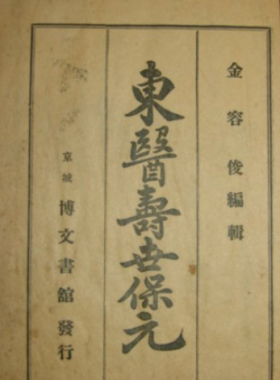 金容俊編輯
東醫壽世保元
京城 博文書館 發行